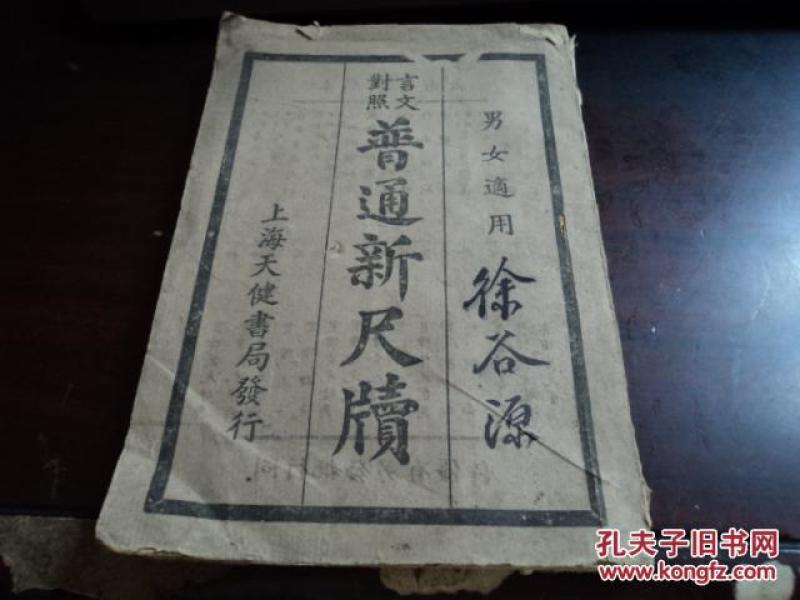 男女適用
徐谷源
言文
對照
普通新尺牘
上海天健書局發行
孔夫子旧书网
www.kongfz.com